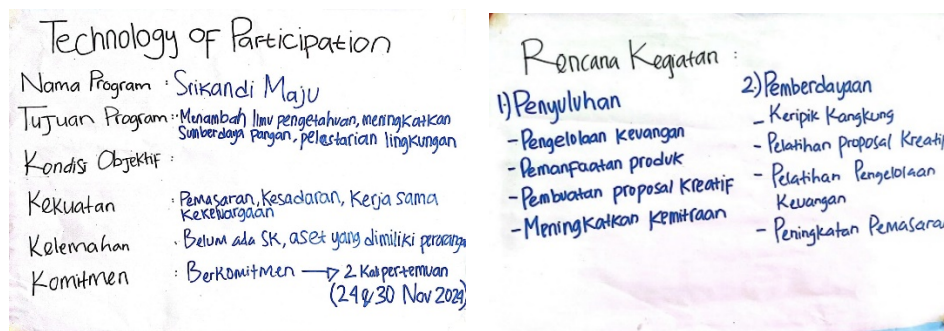 Technology of Participation
Nama Program : Srikandi Maju
Tujuan Program : Menambah Ilmu pengetahuan, meningkatkan
Sumberdaya pangan, pelestarian lingkungan
Kondisi Objektif :
Kekuatan : Pemasaran, Kesadaran, Kerja sama
Kekeluargaan
Kelemahan : Belum ada SK, aset yang dimiliki
Komitmen : Berkomitmen → 2 Kali pertemuan
(24 & 30 Nov 2024)
Rencana Kegiatan :
1) Penyuluhan
- Pengelolaan Keuangan
- Pemanfaatan produk
- Pembuatan proposal Kreatif
- Meningkatkan Kemitraan
2) Pemberdayaan
- Keripik Kangkung
- Pelatihan Proposal Kreatif
- Pelatihan Pengelolaan
Keuangan
- Peningkatan Pemasara